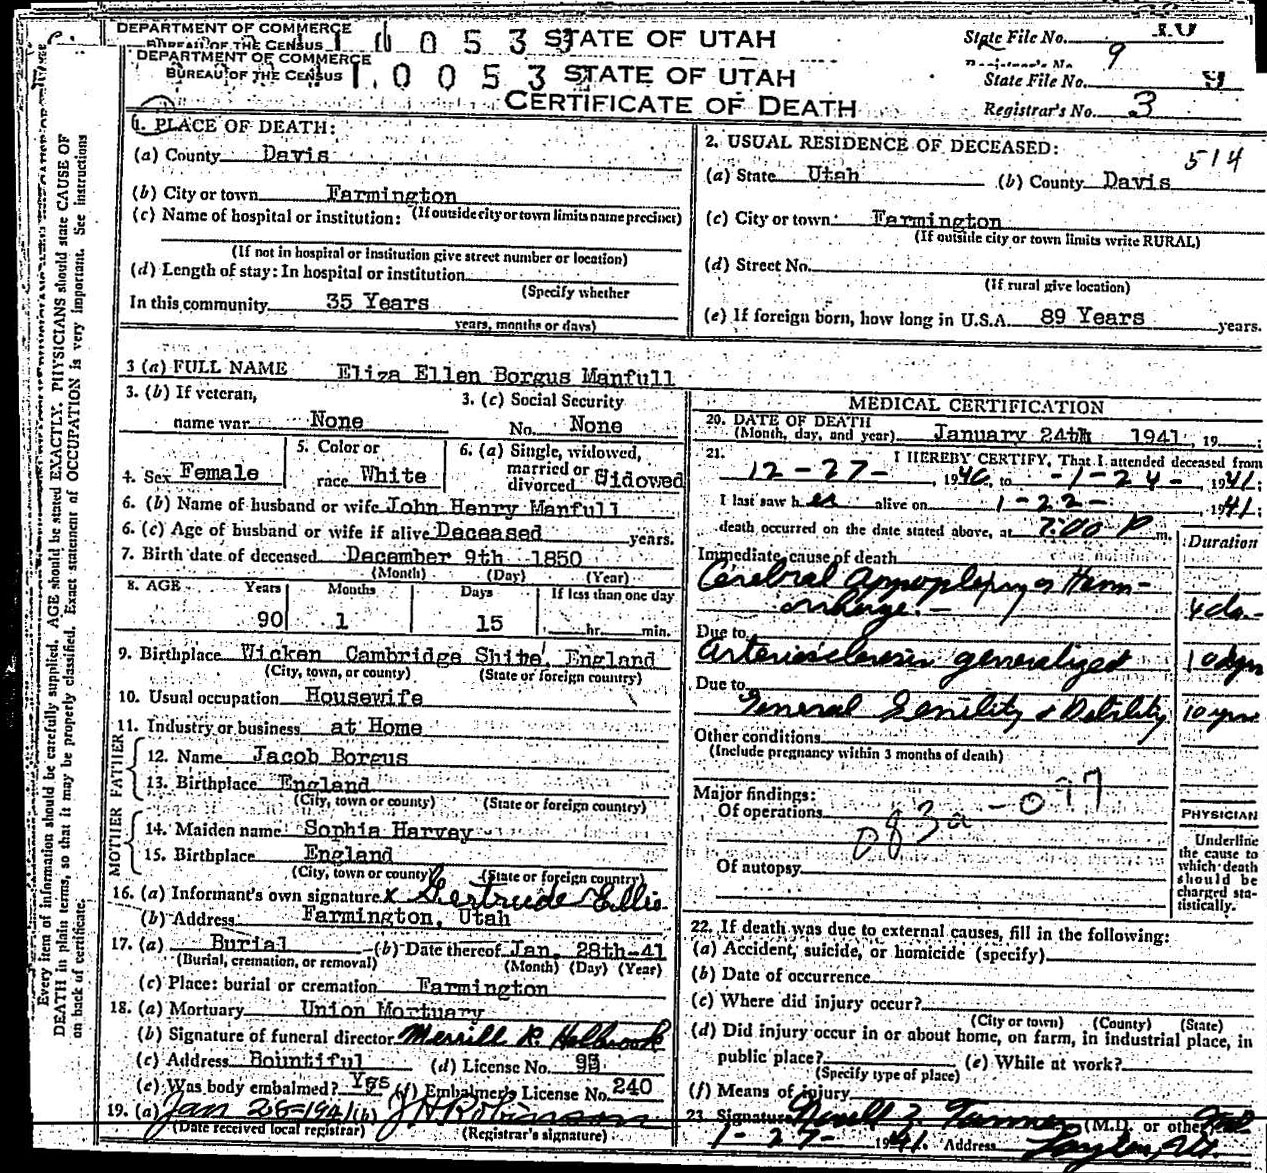 DEPARTMENT OF COMMERCE
BUREAU OF THE CENSUS
STATE OF UTAH
State File No.
9
DEPARTMENT OF COMMERCE
BUREAU OF THE CENSUS
1 0 0 5 3
STATE OF UTAH
State File No. 9
CERTIFICATE OF DEATH
Registrar's No. 3
Every item of information should be carefully supplied. AGE should be stated EXACTLY. PHYSICIANS should state CAUSE OF
DEATH in plain terms, so that it may be properly classified. Exact statement of OCCUPATION is very important. See instructions
on back of certificate.
1. PLACE OF DEATH:
(a) County Davis
(b) City or town Farmington
(c) Name of hospital or institution: (If outside city or town limits name precinct)
(If not in hospital or institution give street number or location)
(d) Length of stay: In hospital or institution
(Specify whether
In this community 35 Years
years, months or days)
2. USUAL RESIDENCE OF DECEASED:
514
(a) State Utah (b) County Davis
(c) City or town: Farmington
(If outside city or town limits write RURAL)
(d) Street No.
(If rural give location)
(e) If foreign born, how long in U.S.A. 89 Years years.
3 (a) FULL NAME Eliza Ellen Borgus Manfull
3. (b) If veteran,
name war None
3. (c) Social Security
No. None
4. Sex Female
5. Color or
race White
6. (a) Single, widowed,
married or
divorced Widowed
6. (b) Name of husband or wife John Henry Manfull
6. (c) Age of husband or wife if alive Deceased years.
7. Birth date of deceased December 9th 1850
(Month) (Day) (Year)
8. AGE Years Months Days If less than one day
90 1 15 hr. min.
9. Birthplace Wicken Cambridge Shire, England
(City, town, or county) (State or foreign country)
10. Usual occupation Housewife
11. Industry or business at Home
FATHER
12. Name Jacob Borgus
13. Birthplace England
(City, town or county) (State or foreign country)
MOTHER
14. Maiden name Sophia Harvey
15. Birthplace England
(City, town or county) (State or foreign country)
16. (a) Informant's own signature x Gertrude Ellis
(b) Address Farmington, Utah
17. (a) Burial (b) Date thereof Jan. 28th-41
(Burial, cremation, or removal) (Month) (Day) (Year)
(c) Place: burial or cremation Farmington
18. (a) Mortuary Union Mortuary
(b) Signature of funeral director Merrill R. Holbrook
(c) Address Bountiful (d) License No.
(e) Was body embalmed? Yes (f) Embalmer's License No. 240
19. (a) Jan 28-1941 (b) J H Robinson
(Date received local registrar) (Registrar's signature)
MEDICAL CERTIFICATION
20. DATE OF DEATH
(Month, day, and year) January 24th 1941, 19
21. I HEREBY CERTIFY, That I attended deceased from
12-27-, 1940, to -1-24-, 1941;
I last saw her alive on 1-22-, 1941;
death occurred on the date stated above, at 7:00 P m.
Duration
Immediate cause of death
Cerebral Appoplexy or Hem-
orrhage.- 4 da.-
Due to
Arteriosclerosis generalized
Due to
General Senility & Debility 10 yrs
Other conditions
(Include pregnancy within 3 months of death)
Major findings:
Of operations
083a-097
Of autopsy
PHYSICIAN
Underline
the cause to
which death
should be
charged sta-
tistically.
22. If death was due to external causes, fill in the following:
(a) Accident, suicide, or homicide (specify)
(b) Date of occurrence
(c) Where did injury occur?
(City or town) (County) (State)
(d) Did injury occur in or about home, on farm, in industrial place, in
public place? (e) While at work?
(Specify type of place)
(f) Means of injury
23. Signature Noall Z. Tanner (M.D. or other)
1-27- 1941. Address Layton, Ut.